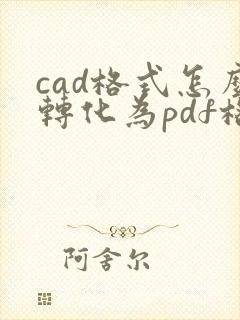 cad格式怎麼
轉化為pdf格
阿舍尔